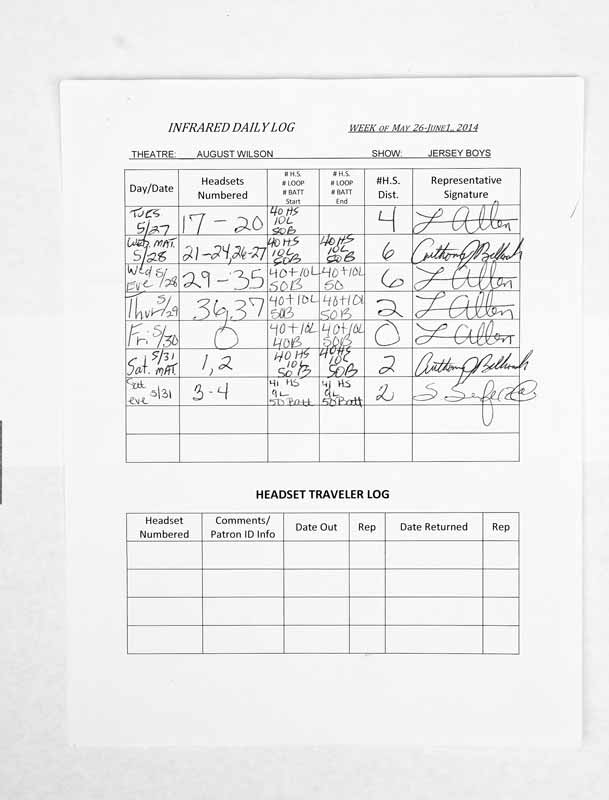 INFRARED DAILY LOG WEEK OF MAY 26-JUNE1, 2014
THEATRE: AUGUST WILSON SHOW: JERSEY BOYS
Day/Date
Headsets
Numbered
# H.S.
# LOOP
# BATT
Start
# H.S.
# LOOP
# BATT
End
#H.S.
Dist.
Representative
Signature
TUES
5/27
17 - 20
40 HS
10L
50B
4
L Allen
Wed. MAT.
5/28
21-24,26-27
40 HS
10L
50B
40 HS
10L
50B
6
Wed 5/28
Eve
29-35
40+10L
50B
40+10L
50
6
L Allen
Thur 5/29
36,37
40+10L
50B
40+10L
50B
2
L Allen
Fri 5/30
0
40+10L
40B
40+10L
50B
0
L Allen
5/31
Sat. MAT
1,2
40 HS
10L
50B
40 HS
10L
50B
2
Sat
eve 5/31
3-4
41 HS
9L
50 Batt
41 HS
9L
50 Batt
2
HEADSET TRAVELER LOG
Headset
Numbered
Comments/
Patron ID Info
Date Out
Rep
Date Returned
Rep